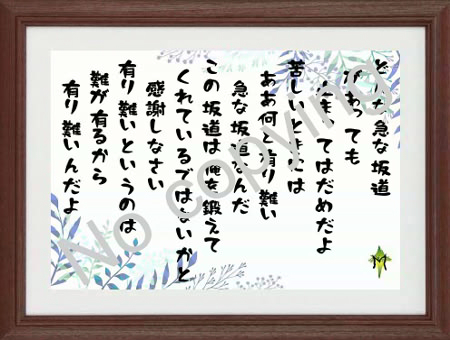 どんな急な坂道
があっても
まってはだめだよ
苦しいときには
ああ何と有り難い
急な坂道なんだ
この坂道は俺を鍛えて
くれているではないかと
感謝しなさい
有り難いというのは
難が有るから
有り難いんだよ
M
No copying